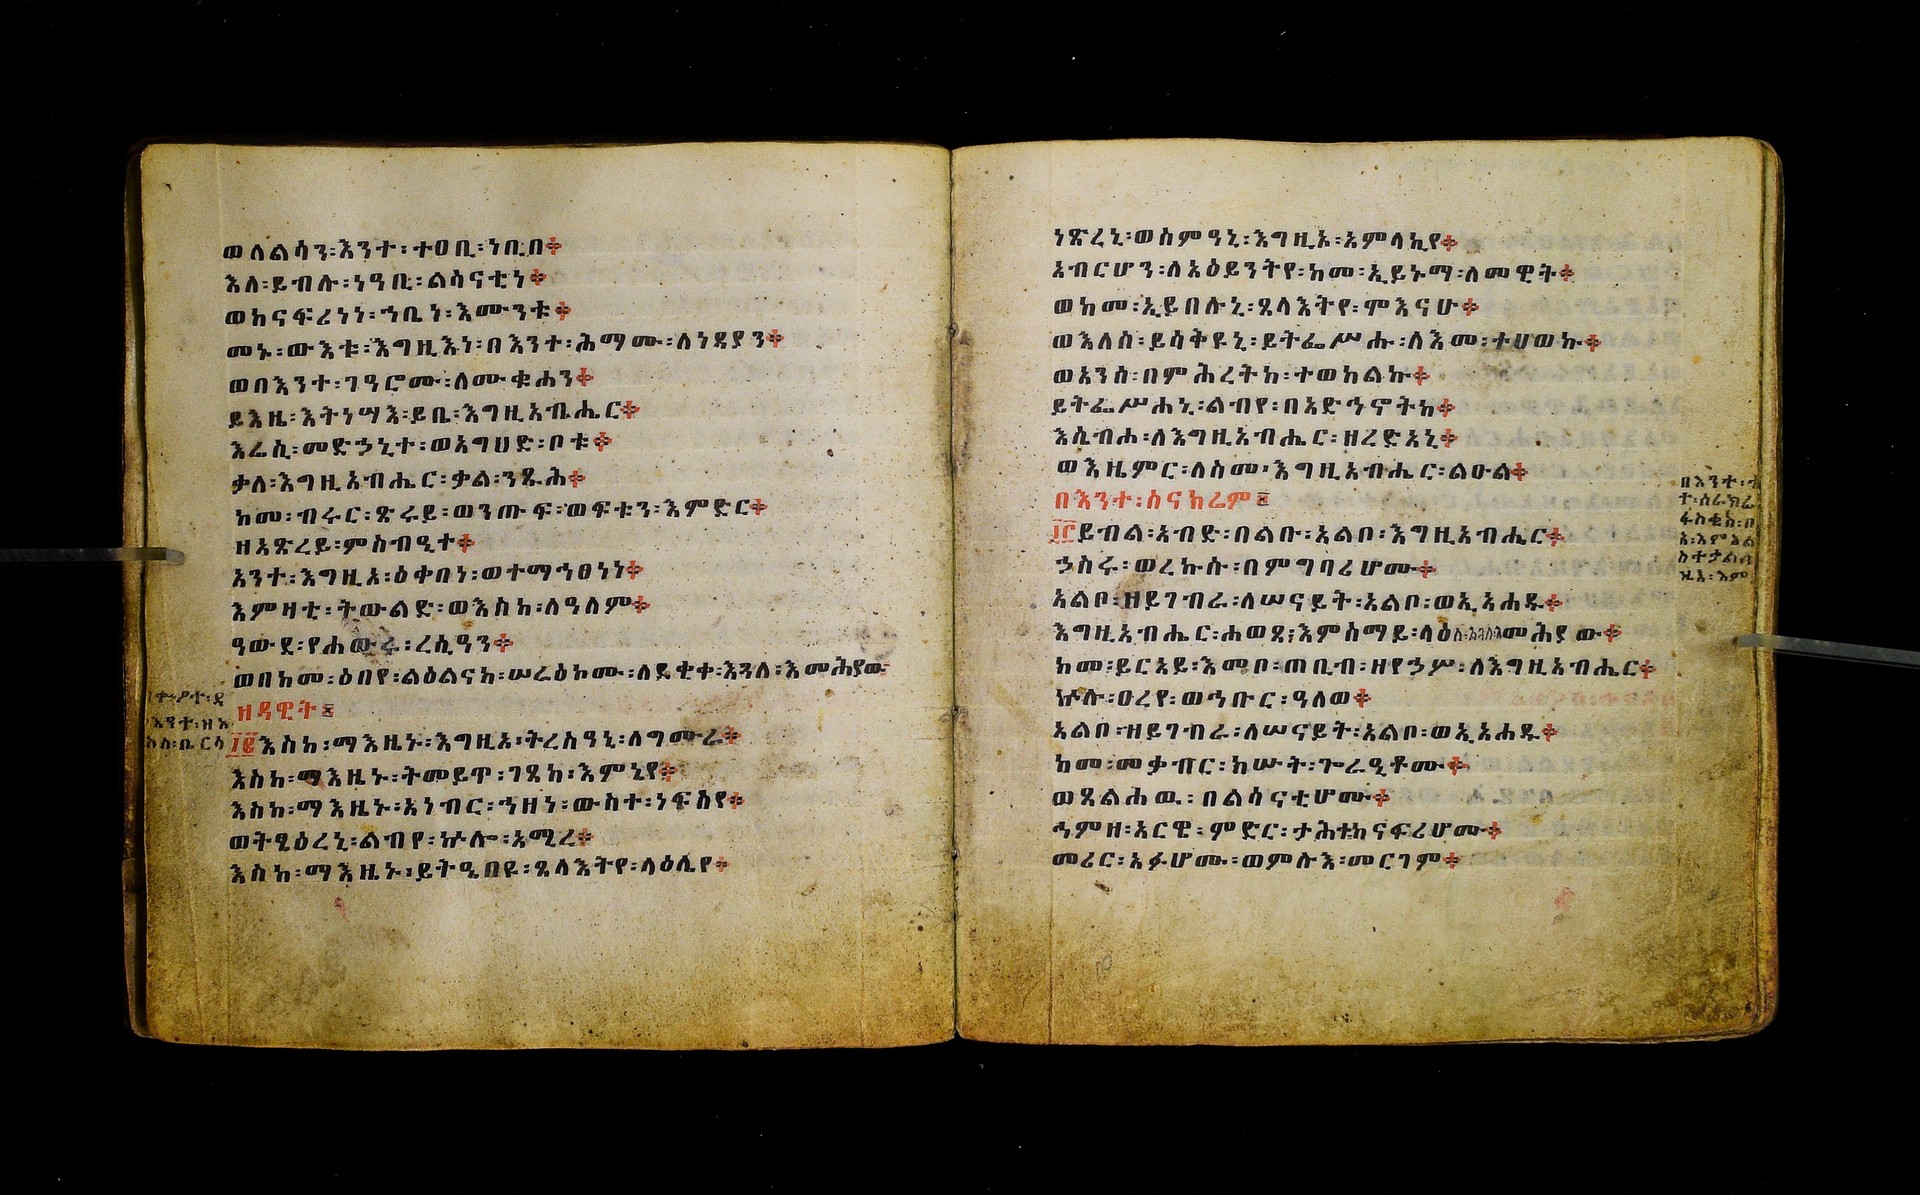 ወለልሳን፡እንተ፡ተዐቢ፡ነቢበ።
እለ፡ይብሉ፡ነዓቢ፡ልሳናቲነ።
ወከናፍሪነነ፡ኀቤነ፡እሙንቱ።
መኑ፡ውእቱ፡እግዚእነ፡በእንተ፡ሕማሙ፡ለነዳያን።
ወበእንተ፡ገዓሮሙ፡ለሙቁሐን።
ይእዜ፡እትነሣእ፡ይቤ፡እግዚአብሔር።
እሬሲ፡መድኃኒተ፡ወአግህድ፡ቦቱ።
ቃለ፡እግዚአብሔር፡ቃል፡ንጹሕ።
ከመ፡ብሩር፡ጽሩይ፡ወንጡፍ፡ወፍቱን፡እምድር።
ዘአጽረይ፡ምስብዒተ።
አንተ፡እግዚአ፡ዕቀበነ፡ወተማኅፀነነ።
እምዛቲ፡ትውልድ፡ወእስከ፡ለዓለም።
ዓውደ፡የሐውሩ፡ረሲዓን።
ወበከመ፡ዕበየ፡ልዕልናከ፡ሠረዕኮሙ፡ለደቂቀ፡እጓለ፡እመሕያው
ዘዳዊት፡
፲፪እስከ፡ማእዜኑ፡እግዚአ፡ትረስዓኒ፡ለግሙራ።
እስከ፡ማእዜኑ፡ትመይጥ፡ገጸከ፡እምኒየ።
እስከ፡ማእዜኑ፡አነብር፡ኀዘነ፡ውስተ፡ነፍስየ።
ወትጼዕረኒ፡ልብየ፡ኵሎ፡አሚረ።
እስከ፡ማእዜኑ፡ይትዔበዩ፡ጸላእትየ፡ላዕሌየ።
ነጽረኒ፡ወስምዓኒ፡እግዚአ፡አምላኪየ።
አብርሆን፡ለአዕይንትየ፡ከመ፡ኢይኑማ፡ለመዊት።
ወከመ፡ኢይበሉኒ፡ጸላእትየ፡ሞእናሁ።
ወእለሰ፡ይሳቅዩኒ፡ይትፌሥሑ፡ለእመ፡ተሀወኩ።
ወአንሰ፡በምሕረትከ፡ተወከልኩ።
ይትፌሥሐኒ፡ልብየ፡በአድኅኖትከ።
እሴብሐ፡ለእግዚአብሔር፡ዘረድአኒ።
ወእዜምር፡ለስመ፡እግዚአብሔር፡ልዑል።
በእንተ፡ሰናክሬም፡
፲፫ይብል፡አብድ፡በልቡ፡አልቦ፡እግዚአብሔር።
ኃስሩ፡ወረኩሱ፡በምግባሪሆሙ።
አልቦ፡ዘይገብራ፡ለሠናይት፡አልቦ፡ወኢአሐዱ።
እግዚአብሔር፡ሐወጸ፡እምሰማይ፡ላዕለ፡እጓለ፡እመሕያው።
ከመ፡ይርአይ፡እመቦ፡ጠቢብ፡ዘየኃሥ፡ለእግዚአብሔር።
ኵሉ፡ዐረየ፡ወኀቡር፡ዓለወ።
አልቦ፡ዘይገብራ፡ለሠናይት፡አልቦ፡ወኢአሐዱ።
ከመ፡መቃብር፡ክሡት፡ጐራዒቶሙ።
ወጸልሐዉ፡በልሳናቲሆሙ።
ኅምዘ፡አርዌ፡ምድር፡ታሕተ፡ከናፍሪሆሙ።
መሪር፡አፉሆሙ፡ወምሉእ፡መርገም።
በእንተ፡